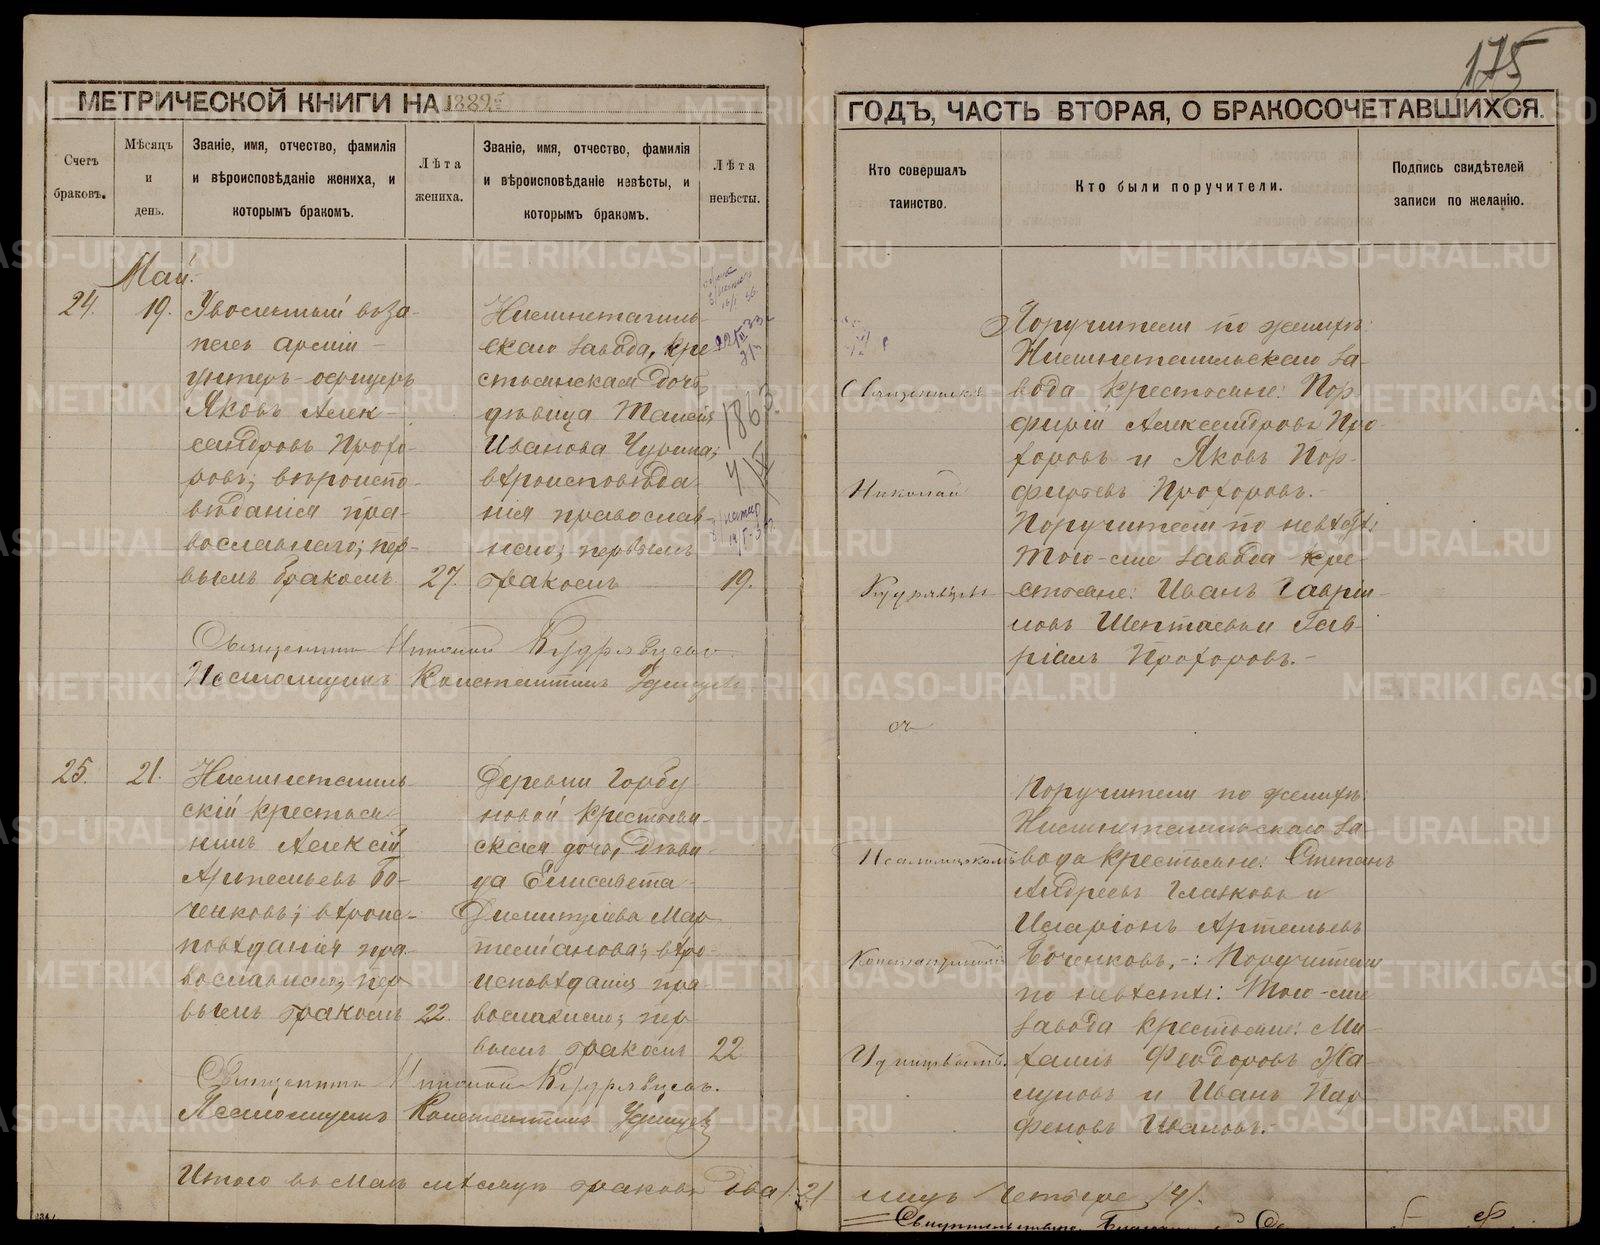 175
МЕТРИЧЕСКОЙ КНИГИ НА 1882й
ГОДЪ, ЧАСТЬ ВТОРАЯ, О БРАКОСОЧЕТАВШИХСЯ.
Счетъ браковъ.
Мѣсяцъ и день.
Званіе, имя, отчество, фамилія
и вѣроисповѣданіе жениха, и
которымъ бракомъ.
Лѣта жениха.
Званіе, имя, отчество, фамилія
и вѣроисповѣданіе невѣсты, и
которымъ бракомъ.
Лѣта невѣсты.
Кто совершалъ
таинство.
Кто были поручители.
Подпись свидѣтелей
записи по желанію.
Май.
24.
19.
Уволенный въ за-
пасъ арміи
унтеръ-офицеръ
Яковъ Алек-
сандровъ Прохо-
ровъ; вѣроиспо-
вѣданія пра-
вославнаго; пер-
вымъ бракомъ
27.
Нижнетагиль-
скаго завода, кре-
стьянская дочь,
дѣвица Таисія
Иванова Чурина;
вѣроисповѣда-
нія православ-
наго; первымъ
бракомъ
19.
1863.
Священникъ
Николай
Кудрявцевъ
Поручители по женихѣ:
Нижнетагильскаго за-
вода крестьяне: Пор-
фирій Александровъ Про-
хоровъ и Яковъ Пор-
фирьевъ Прохоровъ.-
Поручители по невѣстѣ:
того-же завода кре-
стьяне: Иванъ Гаврі-
ловъ Шептаевъ и Гав-
ріилъ Прохоровъ.-
Священникъ Николай Кудрявцевъ
Псаломщикъ Константинъ Удинцевъ
съ
25.
21.
Нижнетагиль-
скій крестья-
нинъ Алексій
Артемьевъ Бо-
ченковъ; вѣроис-
повѣданія пра-
вославнаго; пер-
вымъ бракомъ
22.
Деревни Горбу-
новой крестьян-
ская дочь, дѣви-
ца Елисавета
Димитріева Мар-
темьянова; вѣро-
исповѣданія пра-
вославнаго; пер-
вымъ бракомъ
22
Псаломщикомъ
Константиномъ
Удинцевымъ.
Поручители по женихѣ:
Нижнетагильскаго за-
вода крестьяне: Степанъ
Андреевъ Глазковъ и
Иларіонъ Артемьевъ
Боченковъ.-: Поручители
по невѣстѣ: Того-же
завода крестьяне: Ми-
хаилъ Феодоровъ Жа-
и Иванъ Пар-
феновъ Ивановъ.-
Священникъ Николай Кудрявцевъ.
Псаломщикъ Константинъ Удинцевъ
Итого въ Маѣ мѣсяцѣ браковъ два /2/ лицъ четыре /4/.